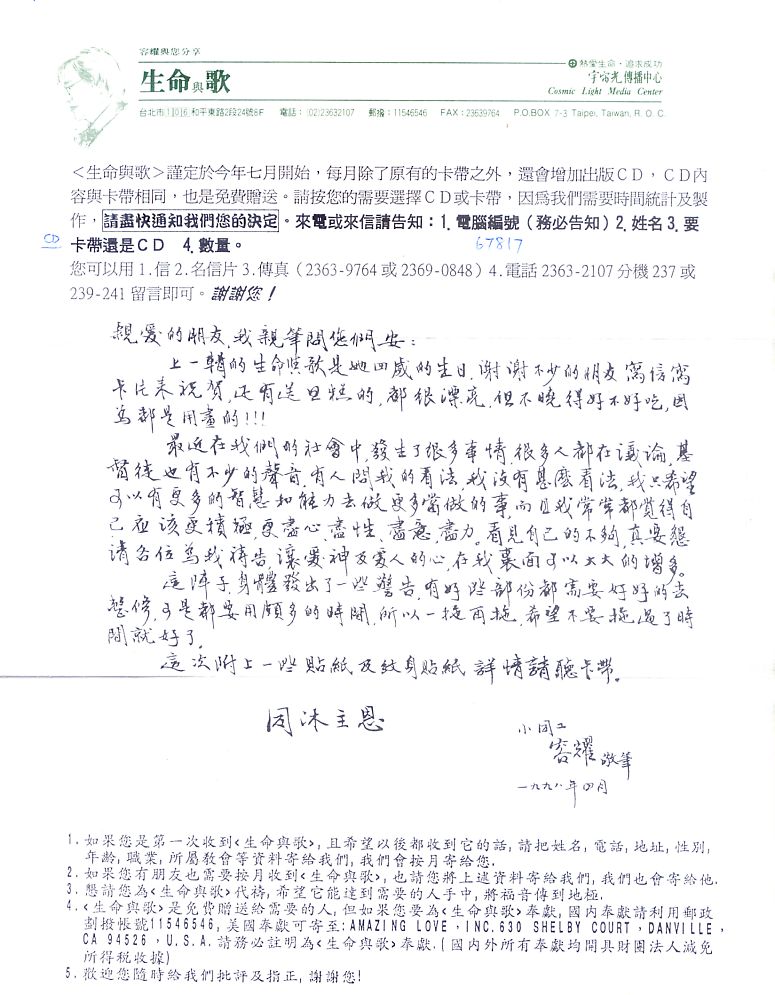 容耀與您分享
生命與歌
熱愛生命·追求成功
宇宙光傳播中心
Cosmic Light Media Center
台北市11016和平東路2段24號8F 電話:(02)23632107 郵撥:11546546 FAX:23639764 P.O.BOX 7-3 Taipei, Taiwan, R. O. C.
<生命與歌>謹定於今年七月開始,每月除了原有的卡帶之外,還會增加出版CD,CD內
容與卡帶相同,也是免費贈送。請按您的需要選擇CD或卡帶,因為我們需要時間統計及製
作,請盡快通知我們您的決定。來電或來信請告知:1. 電腦編號(務必告知)2. 姓名 3. 要
CD
卡帶還是CD 4. 數量。
67817
您可以用 1.信 2.名信片 3.傳真(2363-9764 或 2369-0848)4.電話 2363-2107 分機 237 或
239-241 留言即可。謝謝您!
親愛的朋友,我親筆問您們安:
上一輯的生命與歌是她四歲的生日,謝謝不少的朋友寫信寫
卡片來祝賀,還有送旦糕的,都很漂亮,但不曉得好不好吃,因
為都是用畫的!!!
最近在我們的社會中,發生了很多事情,很多人都在議論,基
督徒也有不少的聲音,有人問我的看法,我沒有甚麼看法,我只希望
可以有更多的智慧和能力去做更多當做的事,而且我常常都覺得自
己應該更積極,更盡心,盡性,盡意,盡力。看見自己的不夠,真要懇
請各位為我禱告,讓愛神及愛人的心,在我裏面可以大大的增多。
這陣子,身體發出了一些警告,有好些部份都需要好好的去
整修,可是都要用頗多的時間,所以一拖再拖,希望不要拖過了時
間就好了。
這次附上一些貼紙及紋身貼紙,詳情請聽卡帶。
同沐主恩
小同工
容耀 敬筆
一九九八年四月
1. 如果您是第一次收到<生命與歌>, 且希望以後都收到它的話, 請把姓名, 電話, 地址, 性別,
年齡, 職業, 所屬教會等資料寄給我們, 我們會按月寄給您.
2. 如果您有朋友也需要按月收到<生命與歌>, 也請您將上述資料寄給我們, 我們也會寄給他.
3. 懇請您為<生命與歌>代禱, 希望它能達到需要的人手中, 將福音傳到地極.
4. <生命與歌>是免費贈送給需要的人, 但如果您要為<生命與歌>奉獻, 國內奉獻請利用郵政
劃撥帳號11546546, 美國奉獻可寄至: AMAZING LOVE, INC. 630 SHELBY COURT, DANVILLE,
CA 94526, U.S.A. 請務必註明為<生命與歌>奉獻. (國內外所有奉獻均開具財團法人減免
所得稅收據)
5. 歡迎您隨時給我們批評及指正, 謝謝您!